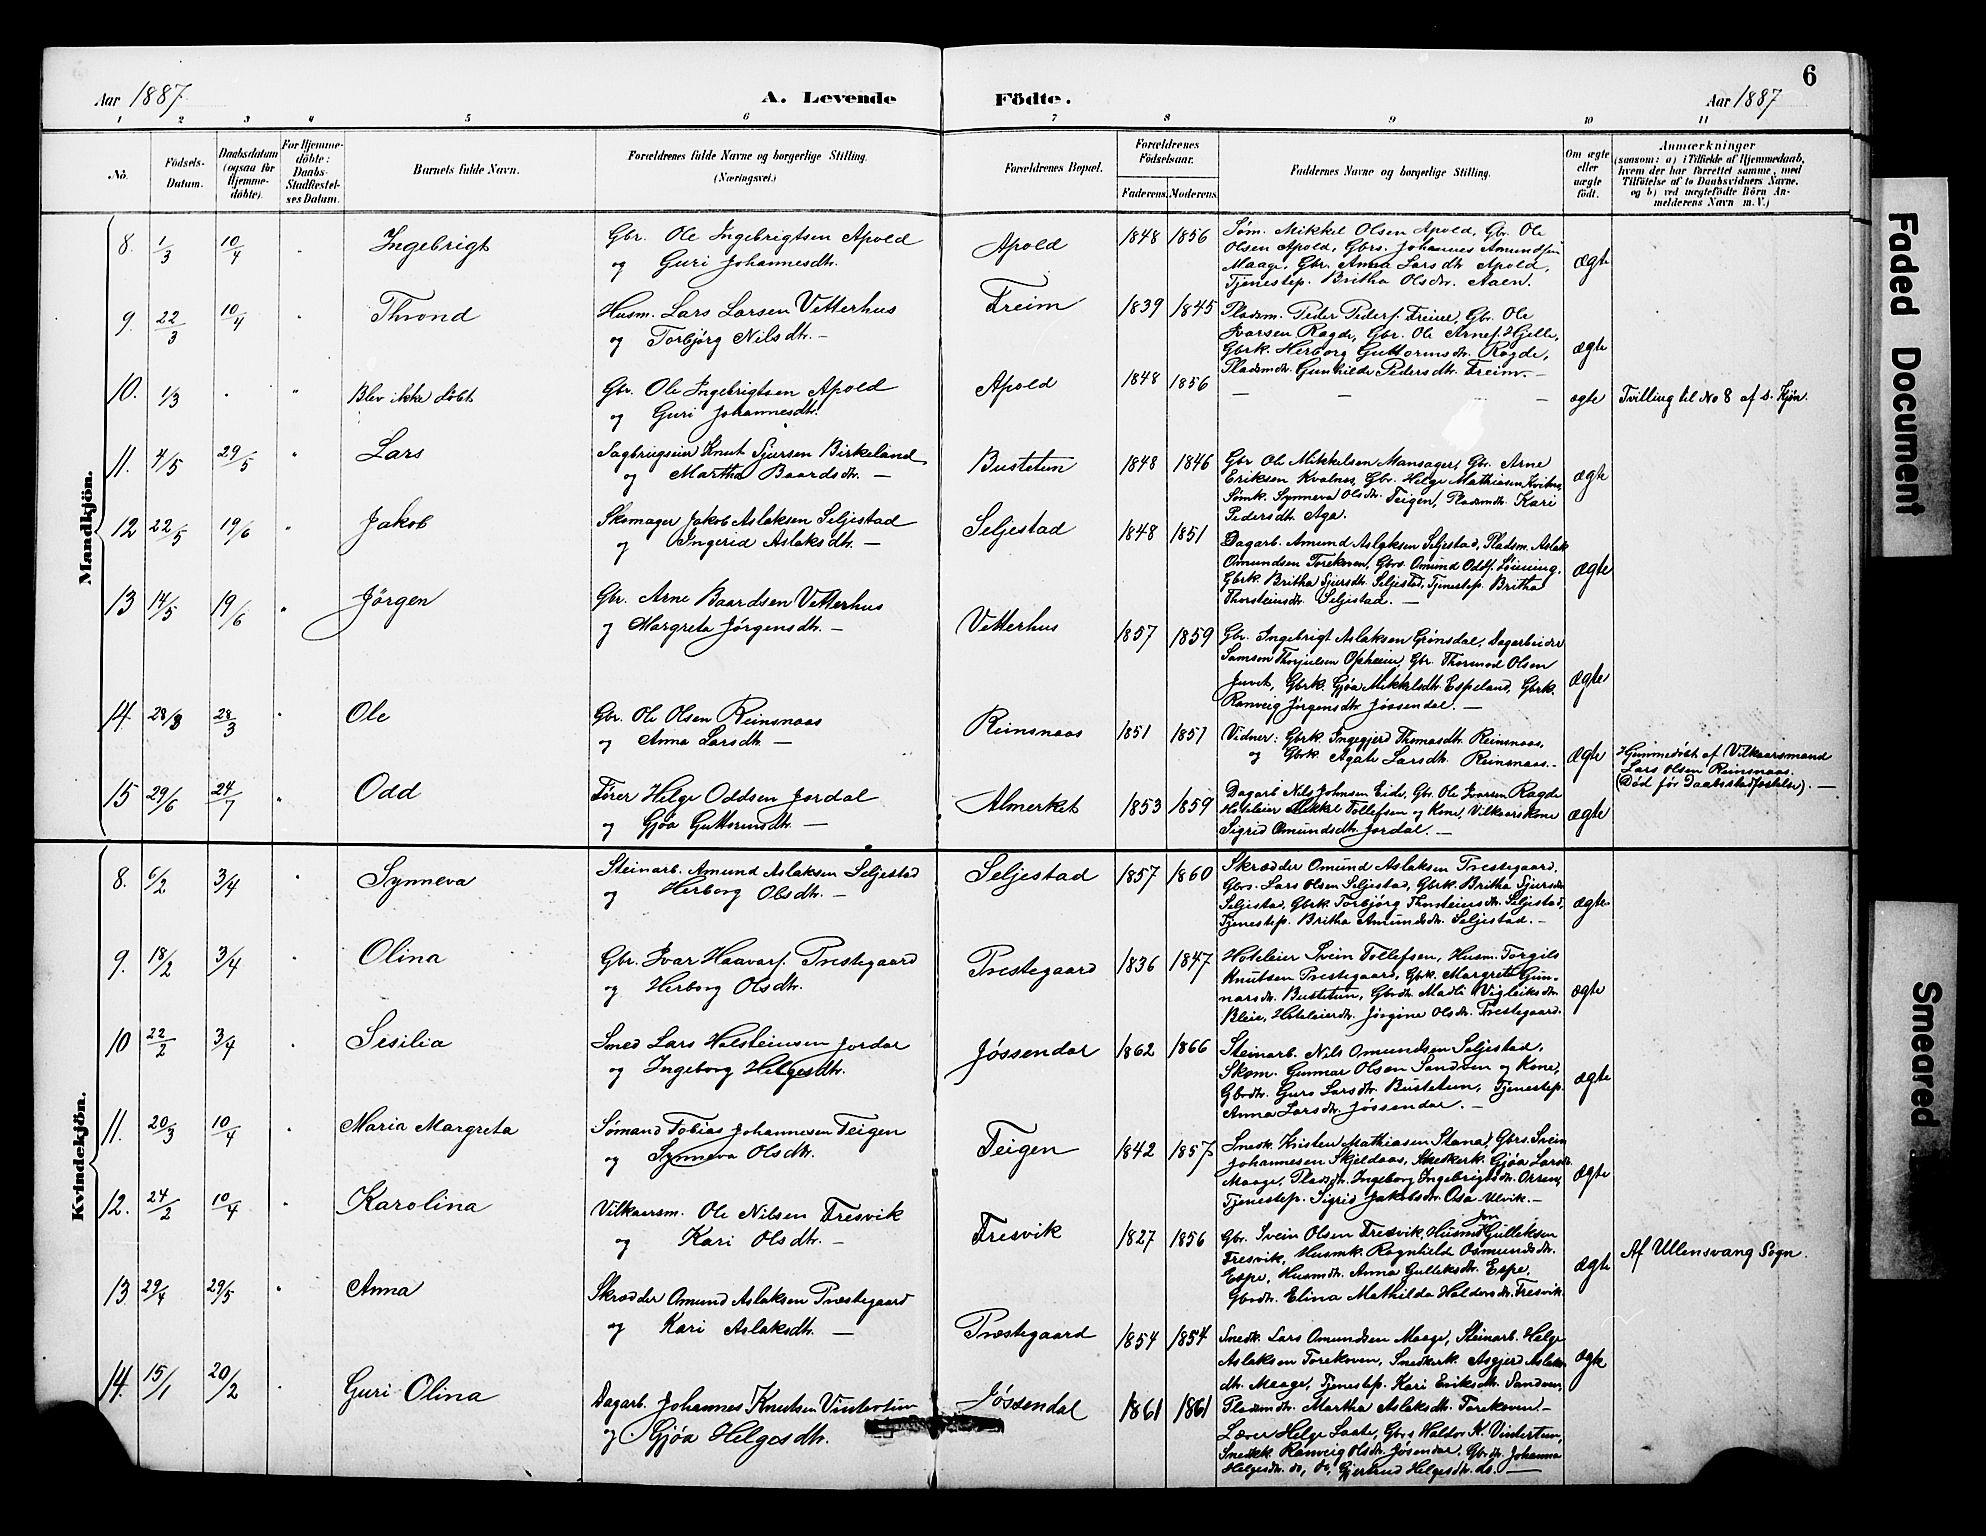 6
Aar 1887
A. Levende Födte.
Aar 1887
1 2 3 4 5 6 7 8 9 10 11
No. Födsels-Datum. Daabsdatum (ogsaa for Hjemmedöbte). For Hjemmedöbte: Daabs-Stadfæstelses Datum. Barnets fulde Navn. Forældrenes fulde Navne og borgerlige Stilling. (Næringsvei.) Forældrenes Bopæl. Forældrenes Födselsaar. Faderens. Moderens. Faddernes Navne og borgerlige Stilling. Om ægte eller uægte födt. Anmærkninger (saasom: a) i Tilfælde af Hjemmedaab, hvem der har forrettet samme, med Tilföielse af to Daabsvidners Navne, og b) ved uægtefödte Börn Anmelderens Navn m. V.)
Mandkjön.
8. 1/3 10/4 " Ingebrigt
Gbr. Ole Ingebrigtsen Apold
og Guri Johannesdtr.
Apold 1848 1856
Søm. Mikkel Olsen Apold, Gbr. Ole
Olsen Apold, Gbrs. Johannes Amundsen
Maage, Gbr. Anna Larsdtr. Apold,
Tjenestep. Britha Olsdtr. Aaen.
ægte
9. 22/3 10/4 " Thrond
Husm. Lars Larsen Vetterhus
og Torbjörg Nilsdtr. —
Freim 1839 1845
Pladsm. Peder Peders. Freim, Gbr. Ole
Ivarsen Ragde, Gbr. Ole Arnes. Hjelle,
Gbrk. Herborg Guttormsdtr. Ragde,
Pladsmdtr. Gunhilde Pedersdtr. Freim. —
ægte
10. 1/3 " " Blev ikke döbt.
Gbr. Ole Ingebrigtsen Apold
og Guri Johannesdtr.
Apold 1848 1856
— — —
ægte
Tvilling til No 8 af s. Kjön.
11. 4/5 29/5 " Lars
Sagbrugseier Knut Sjursen Birkeland
og Martha Baardsdtr. —
Bustetun 1848 1846
Gbr. Ole Mikkelsen Mansager, Gbr. Arne
Eriksen Kvalnes, Gbr. Helge Mathiasen Kvitno,
Sömk. Synneva Olsdtr. Teigen, Pladsmdtr. Kari
Pedersdtr. Aga.
ægte
12 22/5 19/6 " Jakob
Skomager Jakob Aslaksen Seljestad
og Ingerid Aslaksdtr. —
Seljestad 1848 1851
Dagarb. Amund Aslaksen Seljestad, Pladsm. Aslak
Omundsen Torekoven, Gbrs. Omund Odds. Löining,
Gbrk. Britha Sjursdtr. Seljestad, Tjenestep. Britha
Thorsteinsdtr. Seljestad. —
ægte
13 14/5 19/6 " Jörgen
Gbr. Arne Baardsen Vetterhus
og Margreta Jörgensdtr. —
Vetterhus 1857 1859
Gbr. Ingebrigt Aslaksen Grönsdal, Dagarbeider
Samson Thorjulsen Opheim, Gbr. Thormod Olsen
Juvet, Gbrk. Gjöa Mikkelsdtr. Espeland, Gbrk.
Ranveig Jörgensdtr. Jössendal. —
ægte
14. 28/3 28/3 " Ole
Gbr. Ole Olsen Reinsnaas
og Anna Larsdtr. —
Reinsnaas 1851 1857
Vidner: Gbrk. Ingegjerd Thomasdtr. Reinsnaas,
og Gbrk. Agate Larsdtr. Reinsnaas. —
ægte
Hjemmedöbt af Vilkaarsmand
Lars Olsen Reinsnaas.
(Död för Daabsstadfæstelse). —
15 29/6 24/7 " Odd
Förer Helge Oddsen Jordal
og Gjöa Guttormsdtr. —
Almerket 1853 1859
Dagarb. Nils Johnsen Eide, Gbr. Ole Ivarsen Ragde
Hoteleier Mikkel Tollefsen og Kone, Vilkaarskone
Sigrid Omundsdtr. Jordal. —
ægte
Kvindekjön.
8. 6/2 3/4 " Synneva
Steinarb. Amund Aslaksen Seljestad
og Herborg Olsdtr. —
Seljestad 1857 1860
Skrædder Omund Aslaksen Prestegaard,
Gbrs. Lars Olsen Seljestad, Gbrk. Britha Sjursdtr.
Seljestad, Gbrk. Torbjörg Thorsteinsdtr. Seljestad,
Tjenestep. Britha Amundsdtr. Seljestad. —
ægte
9. 18/2 3/4 " Olina
Gbr. Ivar Haavars. Prestegaard
og Herborg Olsdtr.
Prestegaard 1836 1847
Hoteleier Svein Tollefsen, Husm. Torgils
Knutsen Prestegaard, Gbrk. Margreta Gun-
narsdtr. Bustetun, Gbrdtr. Madli Vigleiksdtr.
Bleie, Hoteleierdtr. Jörgine Olsdtr. Prestegaard.
ægte
10 22/2 3/4 " Sesilia
Smed Lars Holsteinsen Jordal
og Ingeborg Helgesdtr.
Jössendal 1862 1866
Steinarb. Nils Omundsen Seljestad,
Skom. Gunnar Olsen Sandven og Kone,
Gbrdtr. Guro Larsdtr. Bustetun, Tjenestep.
Anna Larsdtr. Jössendal. —
ægte
11. 20/3 10/4 " Maria Margreta
Sömand Tobias Johannesen Teigen
og Synneva Olsdtr.
Teigen 1842 1857
Snedk. Kristen Mathiasen Stana, Gbrs. Svein
Johannesen Skjeldaas, Snedkerk. Gjöa Larsdtr.
Maage, Pladsdtr. Ingeborg Ingebrigtsdtr. Orsen,
Tjenestep. Sigrid Jakobsdtr. Osa Ulvik. —
ægte
12. 24/2 10/4 " Karolina
Vilkaarsm. Ole Nilsen Fresvik
og Kari Olsdtr. —
Fresvik 1827 1856
Gbr. Svein Olsen Fresvik, Husms. Jon Gulleksen
Fresvik, Husmk. Ragnhild Osmundsdtr.
Espe, Husmdtr. Anna Gulleksdtr. Espe,
Gbrdtr. Elina Mathilda Haldorsdtr. Fresvik.
ægte
Af Ullensvang Sogn.
13. 29/4 29/5 " Anna
Skrædder Omund Aslaksen Præstegaard
og Kari Aslaksdtr. —
Præstegaard 1854 1854
Snedk. Lars Omundsen Maage, Steinarb. Helge
Aslaksen Torekoven, Snedkerk. Asgjerd Aslaks-
dtr. Maage, Tjenestep. Kari Eriksdtr. Sandven,
Pladsmdtr. Martha Aslaksdtr. Torekoven. —
ægte
14. 15/1 20/2 " Guri Olina
Dagarb. Johannes Knutsen Vintertun
og Gjöa Helgesdtr.
Jössendal 1861 1861
Lærer Helge Saate, Gbrs. Haldor K. Vintertun,
Snedkk. Ranveig Olsdtr. Jösendal, Gbrdtr. Johanna
Helgesdtr. do, Gjertrud Helgesdtr. do. —
Faded Document
Smeared